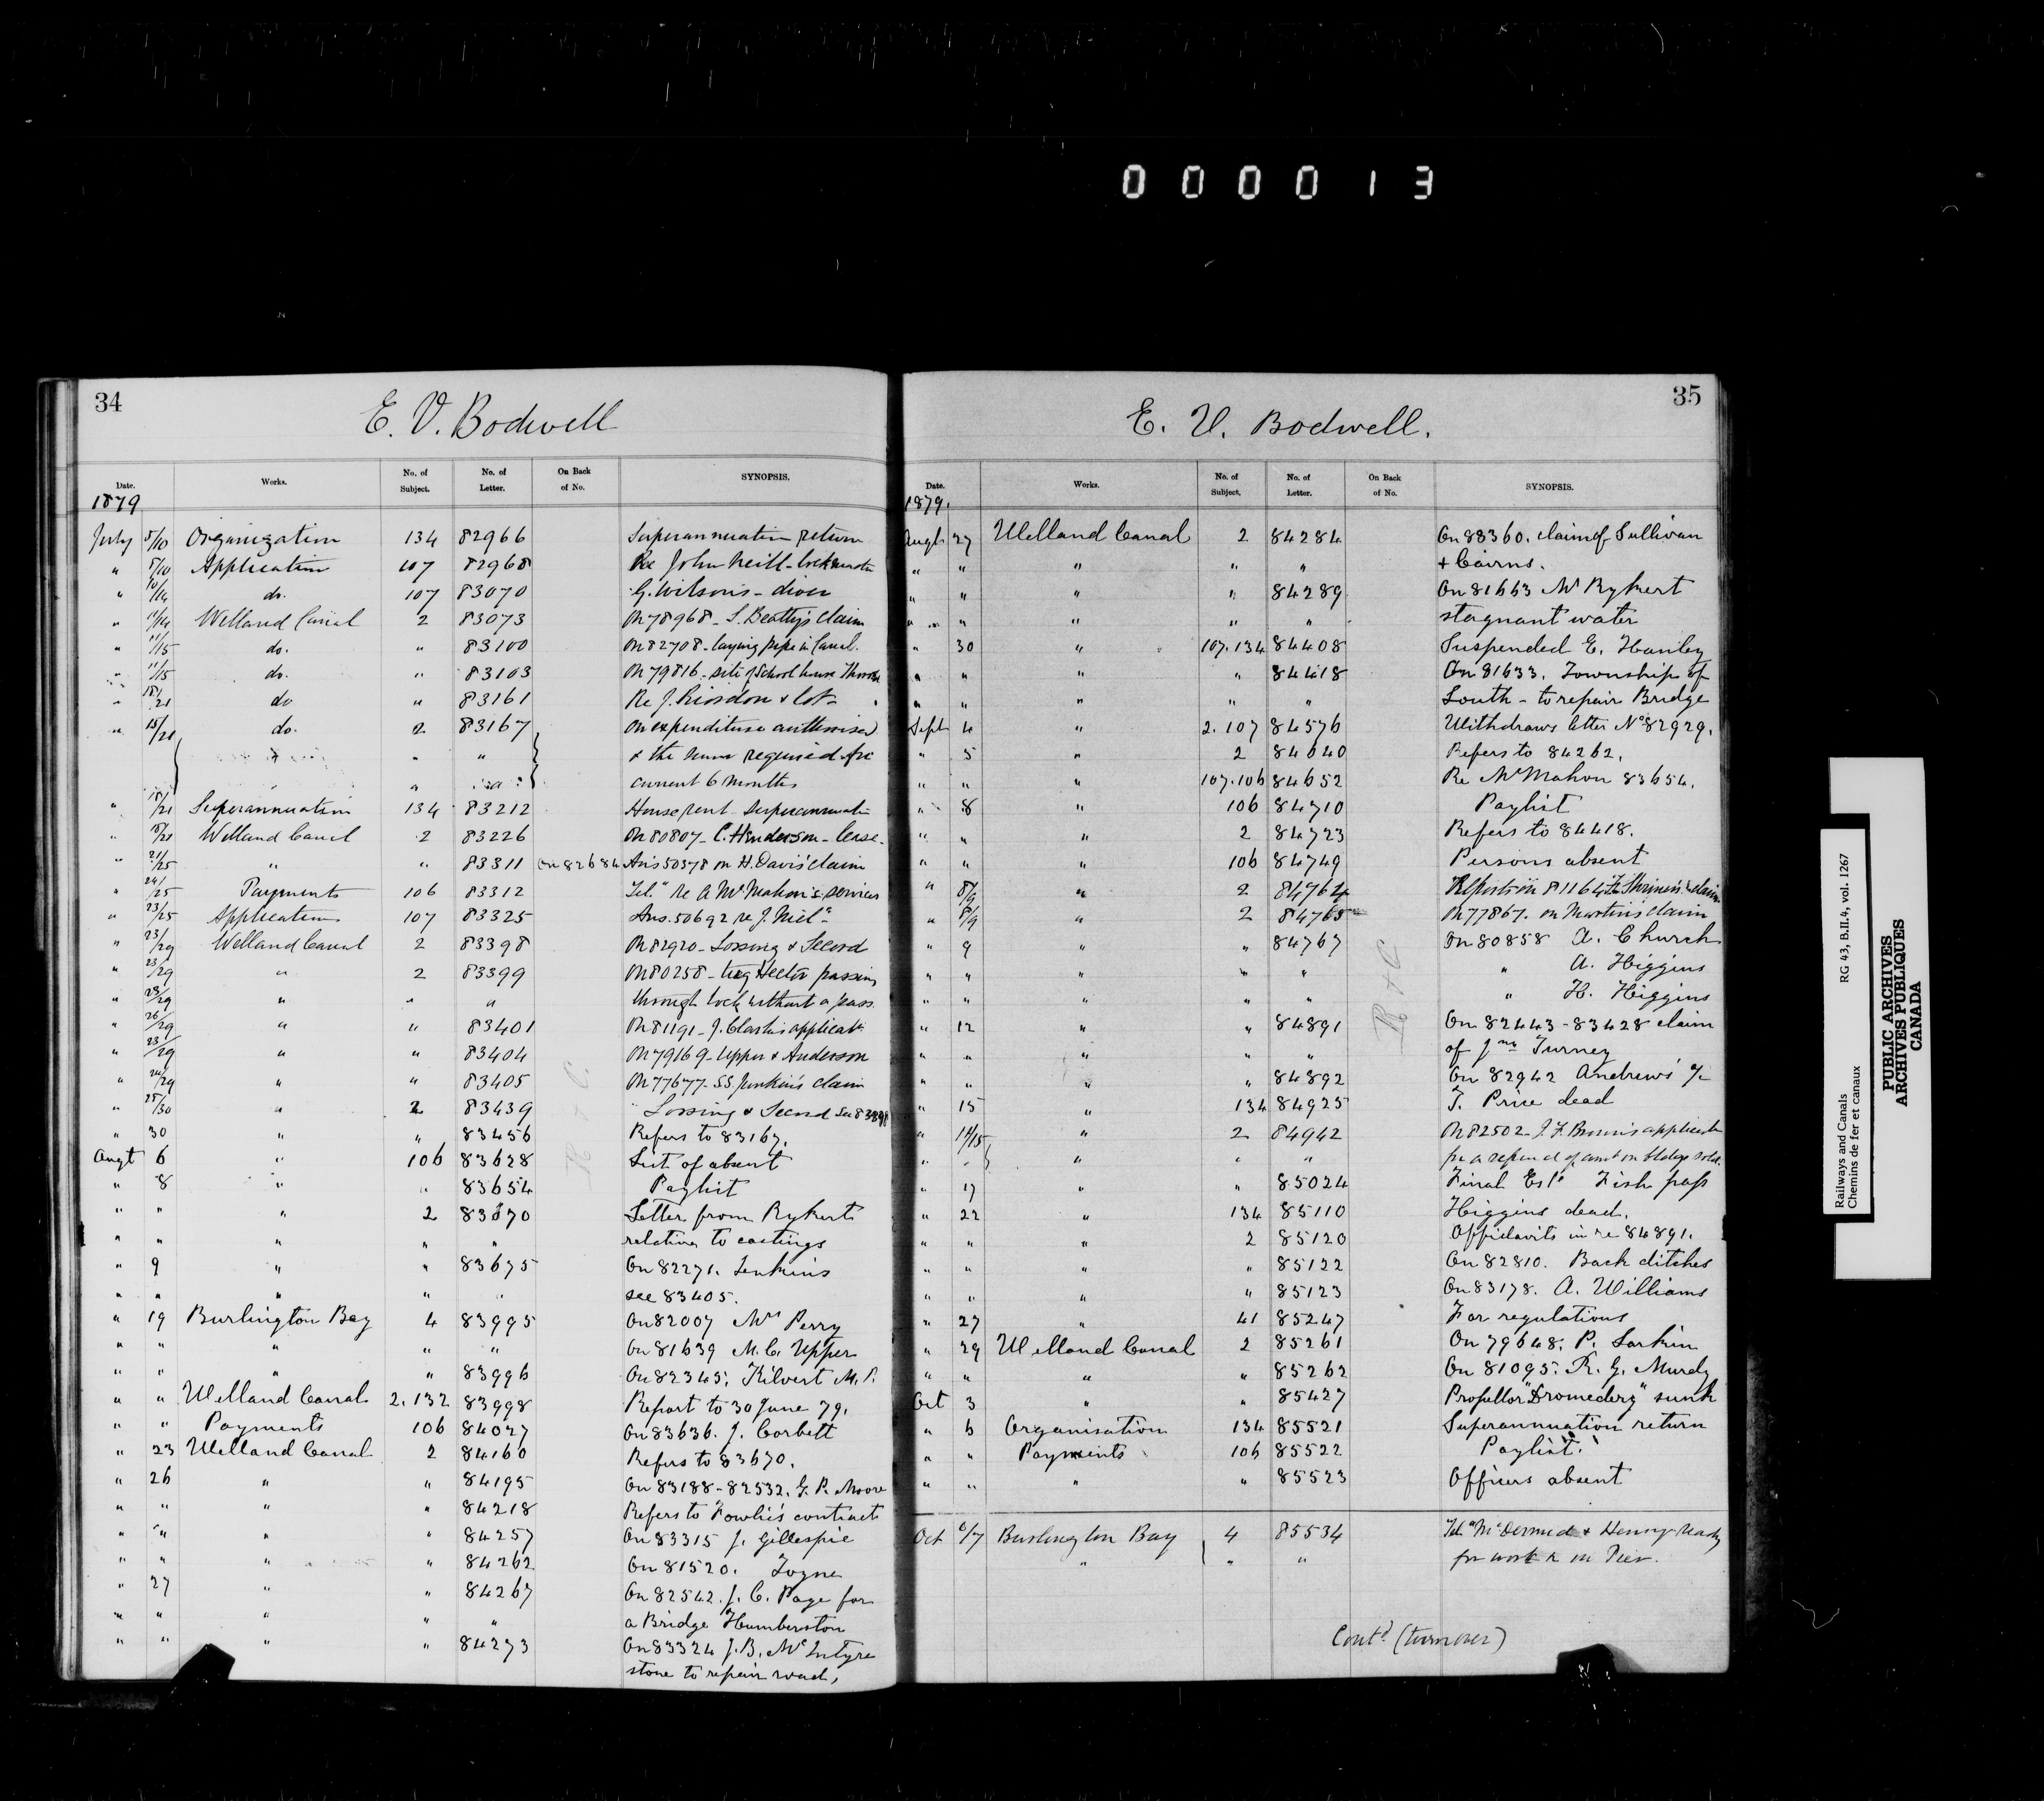 000013
34
E. V. Bodwell
Date. Works. No. of Subject. No. of Letter. On Back of No. SYNOPSIS.
1879
July 8/10 Organization 134 82966 Superannuation return
" 8/10 Application 107 82968 Re John Neill - lockmaster
" 10/14 do. 107 83070 G. Wilson's - diver
" 11/14 Welland Canal 2 83073 On 78968 - S. Beatty's claim
" 11/15 do. " 83100 On 82708 - laying pipe in Canal.
" 11/15 do. " 83103 On 79816 - site of School house
" 18/21 do " 83161 Re J. Riordon & lot
" 15/21 do. 2 83167 On expenditure authorised
" " & the sum required for
" current 6 months
" 18/21 Superannuation 134 83212 House rent - superannuatn
" 18/21 Welland Canal 2 83226 On 80807 - C. Henderson - lease.
" 21/25 " " 83311 On 82684 Ans 50378 on H. Davis' claim
" 24/25 Payments 106 83312 Tel. " re A McMahon's services
" 23/25 Application 107 83325 Ans. 50692 re J. Niel "
" 23/29 Welland Canal 2 83398 On 82920 - Lossing & Secord
" 23/29 " 2 83399 On 80258 - tug Hector passing
" 23/29 " " " through lock without a pass.
" 26/29 " " 83401 On 81191 - J. Clark's applicatn
" 23/29 " " 83404 On 79169 - Upper & Anderson
" 24/29 " " 83405 On 77677 - SS Junkin's claim
" 25/30 " 2 83439 Lossing & Secord See 83398
" 30 " " 83456 Refers to 83167.
Augt 6 " 106 83628 List of absent
" 8 " " 83654 Paylist
" " " 2 83670 Letter from Rykert
" " " " " relative to castings
" 9 " " 83675 On 82271. Jenkins
" " " " " see 83405.
" 19 Burlington Bay 4 83995 On 82007 Mrs Perry
" " " " " On 81639 M. C. Upper
" " " " 83996 On 82345. Kilvert M.P.
" " Welland Canal 2.132 83998 Report to 30 June 79.
" " Payments 106 84027 On 83636. J. Corbett
" 23 Welland Canal 2 84160 Refers to 83670.
" 26 " " 84195 On 83188-82532. G. P. Moore
" " " " 84218 Refers to Fowlie's contract
" " " " 84257 On 83315 J. Gillespie
" " " " 84262 On 81520.
" 27 " " 84267 On 82542. J. C. Page for
" " " " " a Bridge Humberston
" " " " 84273 On 83324 J. B. McIntyre
stone to repair road,
R & C
35
E. V. Bodwell.
Date. Works. No. of Subject. No. of Letter. On Back of No. SYNOPSIS.
1879.
Augt 27 Welland Canal 2 84284 On 83360. claim of Sullivan
" " " " " + Cairns.
" " " " 84289 On 81663 Mr Rykert
" " " " " stagnant water
" 30 " 107.134 84408 Suspended E. Hanley
" " " " 84418 On 81633. Township of
" " " " " Louth - to repair Bridge
Sept 4 " 2.107 84576 Withdraws letter No 82929.
" 5 " 2 84640 Refers to 84262.
" " " 107.106 84652 Re McMahon 83654.
" 8 " 106 84710 Paylist
" " " 2 84723 Refers to 84418.
" " " 106 84749 Persons absent
" 8/9 " 2 84764 Reports on 81164 claim
" 8/9 " 2 84765 On 77867. on Martin's claim
" 9 " " 84767 On 80858 A. Church
" " " " " " A. Higgins
" " " " " " H. Higgins
" 12 " " 84891 On 82443-83428 claim
" " " " " of Jno Turney
" " " " 84892 On 82942 Andrews' %
" 15 " 134 84925 T. Price dead
" 14/15 " 2 84942 On 82502 - J. F. Brown's applicatn
" " " " " for a refund of amt on Sludge sold.
" 17 " " 85024 Final Este Fish pass
" 22 " 134 85110 Higgins dead.
" " " 2 85120 Affidavits in re 84891.
" " " " 85122 On 82810. Back ditches
" " " " 85123 On 83178. A. Williams
" 27 " 41 85247 For regulations
" 29 Welland Canal 2 85261 On 79648. P. Larkin
" " " " 85262 On 81095. R. G. Murdy
Oct 3 " " 85427 Propellor "Dromedery" sunk
" 6 Organisation 134 85521 Superannuation return
" " Payments 106 85522 Paylist.
" " " " 85523 Officers absent
Oct 6/7 Burlington Bay 4 85534 Tel. "McDermid & Henry ready
" " " for work on Pier.
Contd (turnover)
R & C
Railways and Canals RG 43, B.II.4, vol. 1267
Chemins de fer et canaux
PUBLIC ARCHIVES
ARCHIVES PUBLIQUES
CANADA